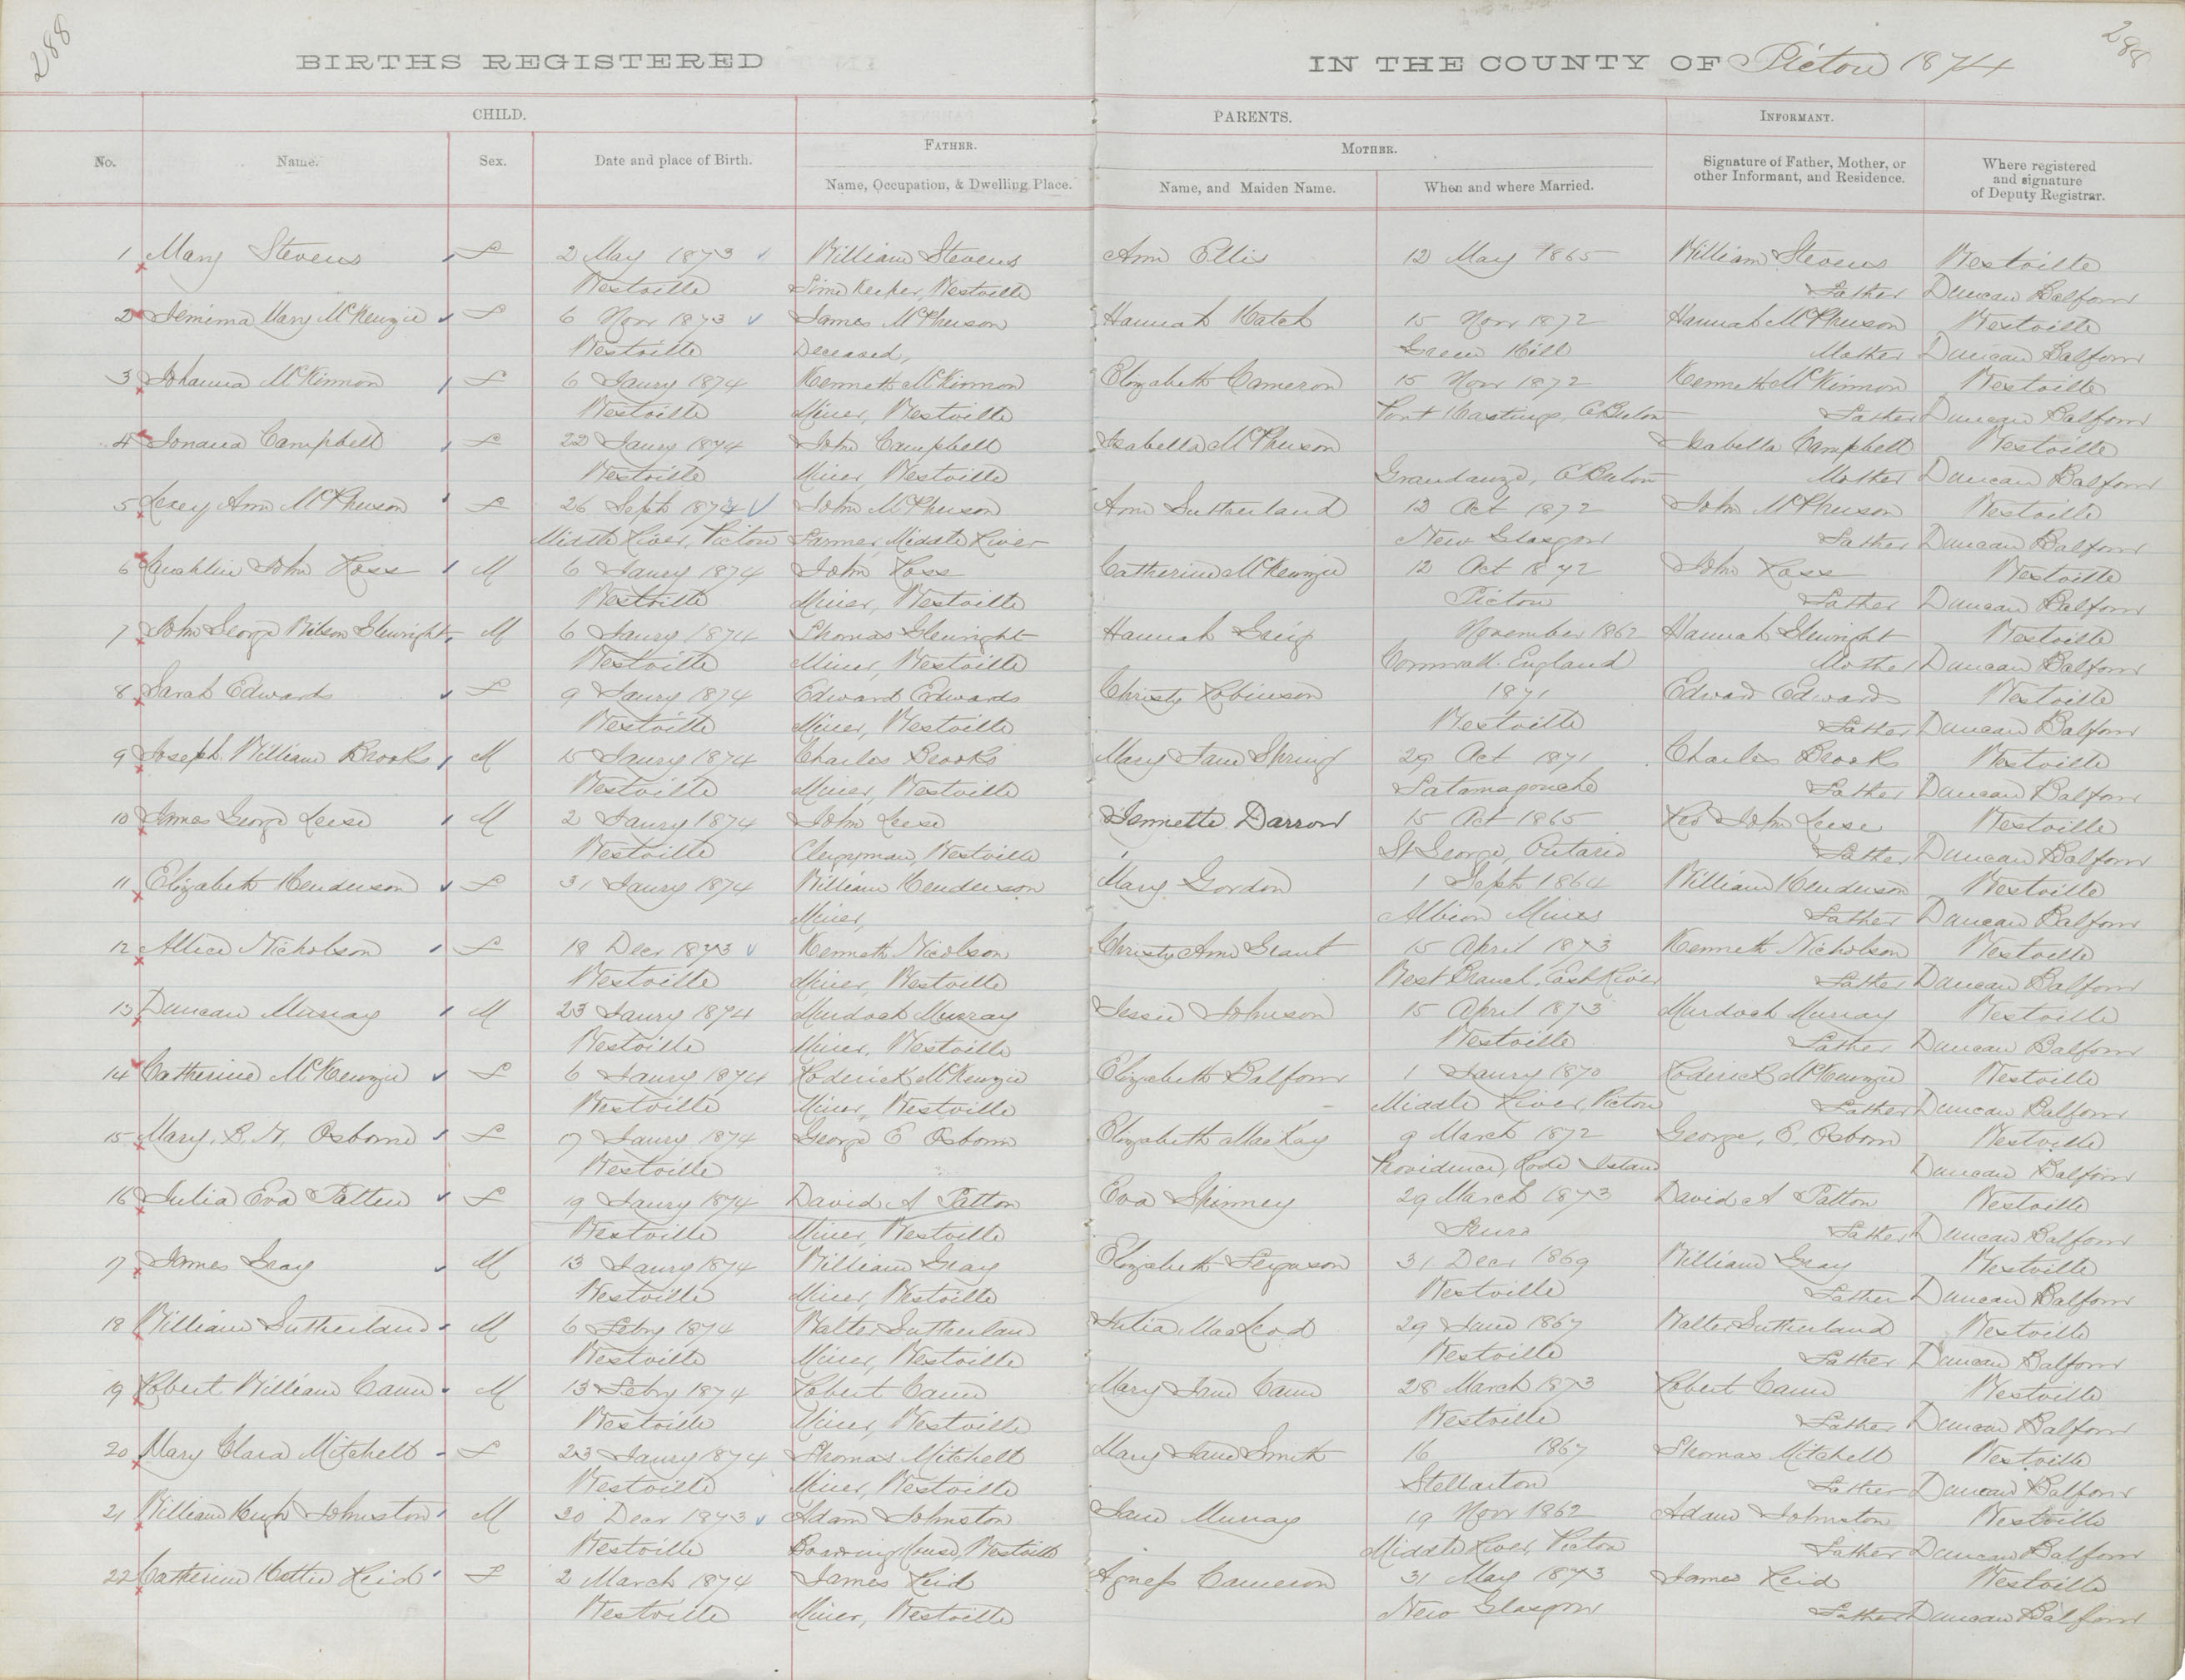 288
288
BIRTHS REGISTERED IN THE COUNTY OF Pictou 1874
CHILD. PARENTS. INFORMANT.
No. Name. Sex. Date and place of Birth. FATHER. MOTHER. Signature of Father, Mother, or other Informant, and Residence. Where registered and signature of Deputy Registrar.
Name, Occupation, & Dwelling Place. Name, and Maiden Name. When and where Married.
1 Mary Stevens F 2 May 1873 William Stevens Ann Ellis 12 May 1865 William Stevens Westville
Westville Time Keeper, Westville Father Duncan Balfour
2 Jemima Mary McKenzie F 6 Novr 1873 James McPherson Hannah Hatch 15 Novr 1872 Hannah McPherson Westville
Westville Deceased, Green Hill Mother Duncan Balfour
3 Johanna McKinnon F 6 Jaury 1874 Kenneth McKinnon Elizabeth Cameron 15 Novr 1872 Kenneth McKinnon Westville
Westville Miner, Westville Port Hastings, CBreton Father Duncan Balfour
4 Campbell F 22 Jaury 1874 John Campbell Isabella McPherson Isabella Campbell Westville
Westville Miner, Westville CBreton Mother Duncan Balfour
5 Lexey Ann McPherson F 26 Sept John McPherson Ann Sutherland 12 Oct 1872 John McPherson Westville
Middle River, Pictou Farmer, Middle River New Glasgow Father Duncan Balfour
6 Lauchlin John Ross M 6 Jaury 1874 John Ross Catherine McKenzie 12 Oct 1872 John Ross Westville
Westville Miner, Westville Pictou Father Duncan Balfour
7 John George Wilson Glenright M 6 Jaury 1874 Thomas Glenright Hannah Greig November 1862 Hannah Glenright Westville
Westville Miner, Westville Cornwall. England Mother Duncan Balfour
8 Sarah Edwards F 9 Jaury 1874 Edward Edwards Christy Robinson 1871 Edward Edwards Westville
Westville Miner, Westville Westville Father Duncan Balfour
9 Joseph William Brooks M 15 Jaury 1874 Charles Brooks Mary Jane Spring 29 Oct 1871 Charles Brooks Westville
Westville Miner, Westville Tatamagouche Father Duncan Balfour
10 James George Leese M 2 Jaury 1874 John Leese Jennette Darrow 15 Oct 1865 Rev John Leese Westville
Westville Clergyman, Westville St George, Ontario Father Duncan Balfour
11 Elizabeth Henderson F 31 Jaury 1874 William Henderson Mary Gordon 1 Sept 1864 William Henderson Westville
Miner, Albion Mines Father Duncan Balfour
12 Allice Nicholson F 18 Decr 1873 Kenneth Nicolson Christy Ann Grant 15 April 1873 Kenneth Nicholson Westville
Westville Miner, Westville West Branch, East River Father Duncan Balfour
13 Duncan Murray M 23 Jaury 1874 Murdoch Murray Jessie Johnson 15 April 1873 Murdoch Murray Westville
Westville Miner, Westville Westville Father Duncan Balfour
14 Catherine McKenzie F 6 Jaury 1874 Roderick McKenzie Elizabeth Balfour 1 Jaury 1870 Roderick McKenzie Westville
Westville Miner, Westville Middle River, Pictou Father Duncan Balfour
15 Mary. B. N. Osborne F 17 Jaury 1874 George E Osborn Elizabeth MacKay 9 March 1872 George. E. Osborn Westville
Westville Providence, Rode Island Duncan Balfour
16 Julia Eva Patten F 19 Jaury 1874 David A Patton Eva Spinney 29 March 1873 David A Patton Westville
Westville Miner, Westville Truro Father Duncan Balfour
17 James Gray M 13 Jaury 1874 William Gray Elizabeth Ferguson 31 Decr 1869 William Gray Westville
Westville Miner, Westville Westville Father Duncan Balfour
18 William Sutherland M 6 Febry 1874 Walter Sutherlan Julia MacLeod 29 June 1867 Walter Sutherland Westville
Westville Miner, Westville Westville Father Duncan Balfour
19 Robert William Cann M 13 Febry 1874 Robert Cann Mary Jane Cann 28 March 1873 Robert Cann Westville
Westville Miner, Westville Westville Father Duncan Balfour
20 Mary Clara Mitchell F 23 Jaury 1874 Thomas Mitchell Mary Jane Smith 16 1867 Thomas Mitchell Westville
Westville Miner, Westville Stellarton Father Duncan Balfour
21 William Hugh Johnston M 30 Decr 1873 Adam Johnston Jane Murray 19 Novr 1862 Adam Johnston Westville
Westville Boarding House, Westville Middle River, Pictou Father Duncan Balfour
22 Catherine Hattie Reid F 2 March 1874 James Reid Agness Cameron 31 May 1873 James Reid Westville
Westville Miner, Westville New Glasgow Father Duncan Balfour